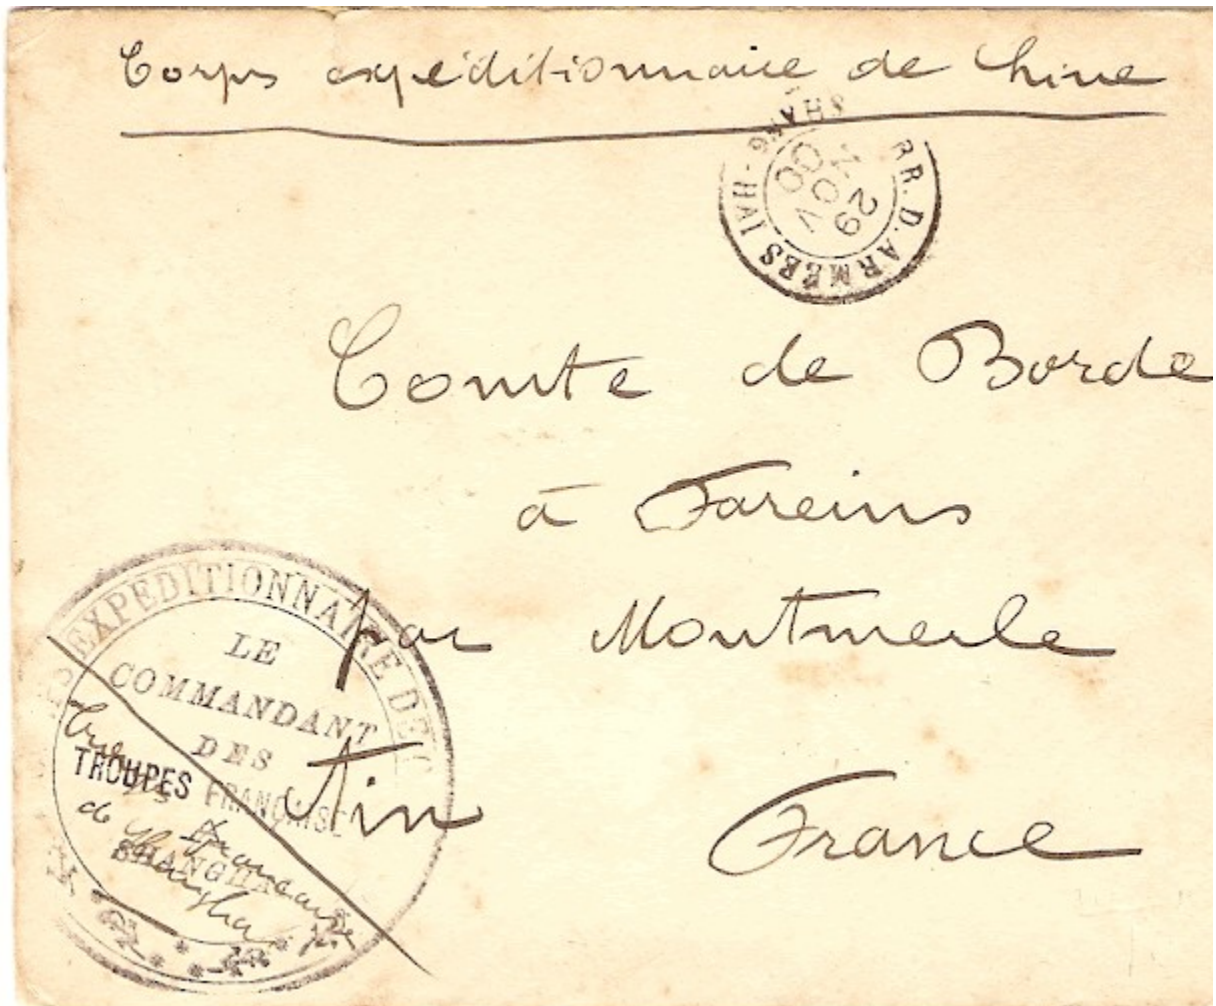 Corps expéditionnaire de Chine
CORR. D. ARMEES
SHANG-HAI
29
NOV
00
Comte de Borde
à Fareins
par Montmerle
Ain
France
EXPEDITIONNAIRE DE C
LE
COMMANDANT
DES
TROUPES FRANÇAISE
SHANGHA
Troupes françaises
de Shanghai